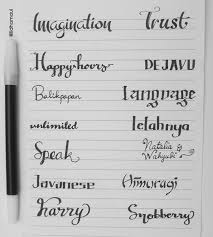 Imagination Trust
Happy hours DEJAVU
Balikpapan Language
unlimited lelahnya
Speak Natalia &
Wahyuki's
Javanese
Harry Snobberry